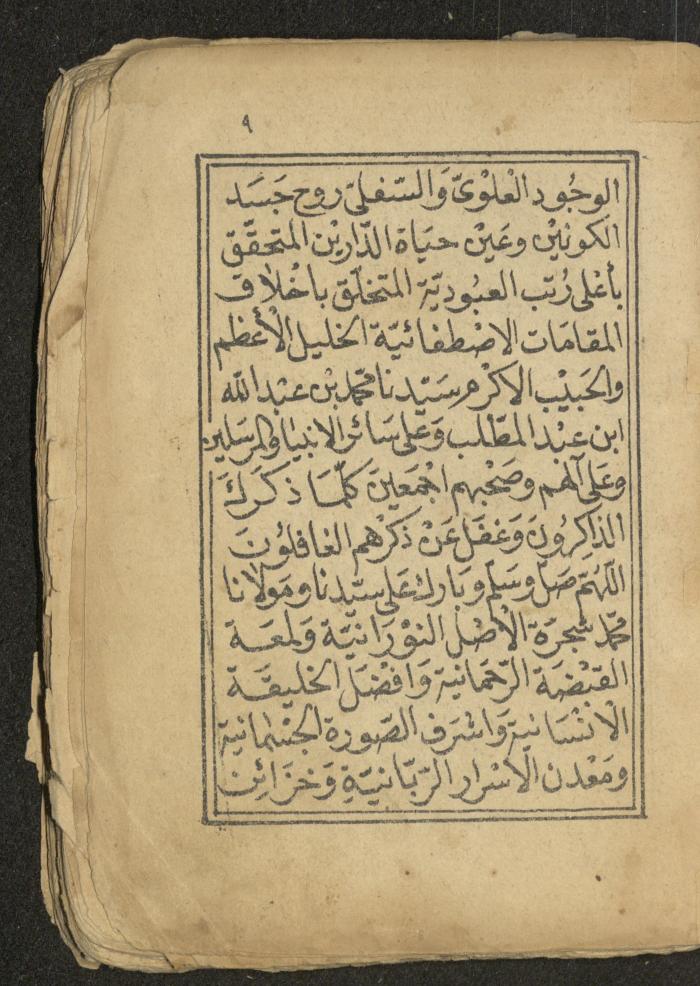 ٩
الوجُود العلْوىّ وَالسّفلىّ روح جَسَد
الكونيْن وعَيْن حيَاة الدّاريْن المتحقّق
بأعْلى رُتب العبُوديّة المتخلّق باخْلاق
المقامَات الاصْطفائيّة الخليل الأعْظم
والحَبيْب الاكرْم سَيّدنا محمّد بْن عبْد الله
ابن عبْد المطّلب وَعلى سَائر الانبيا والمرسَلين
وعَلى آلهم وصَحْبهم اجْمَعينَ كلّمَا ذكَرَكَ
الذاكرُونَ وَغفَل عَنْ ذكرْهم الغافلوُنَ
اللّهُمّ صَلّ وسَلّم وبَارك عَلى سيّدنا ومَولانا
محمّد شجرَة الأصْل النوْرَانيّة وَلمعَة
القبْضَة الرّحْمَانية وَافْضَل الخليقَة
الانْسَانية وَاشرَف الصّورة الجسْمانية
ومَعْدن الأسْرار الرّبّانيّةِ وَخزَائِن